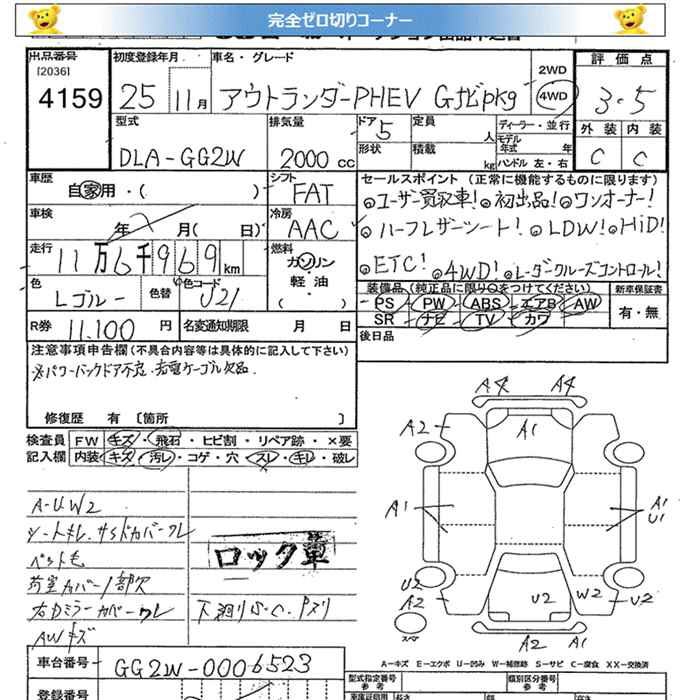 完全ゼロ切りコーナー
出品番号
[2036]
4159
初度登録年月
25 11月
車名・グレード
アウトランダーPHEV Gナビpkg
2WD
4WD
評価点
3.5
外装 内装
C C
型式
DLA-GG2W
排気量
2000 cc
ドア 5
形状
定員 人
積載 kg
ディーラー・並行
モデル年式 年
ハンドル 左・右
車歴
自家用・( )
シフト
FAT
車検
年 月( 日)
冷房
AAC
走行
11万6千969km
燃料
ガソリン
軽油
( )
色
Lゴルー
色替
色コード
U21
R券 11.100 円
名変通知期限 月 日
セールスポイント(正常に機能するものに限ります)
◎ユーザー買取車!◎初出品!◎ワンオーナー!
◎ハーフレザーシート!◎LDW!◎HiD!
◎ETC!◎4WD!◎レーダークルーズコントロール!
装備品(純正品に限り○をつけてください)
PS PW ABS エアB AW
SR ナビ TV カワ
新車保証書
有・無
後日品
注意事項申告欄(不具合内容等は具体的に記入して下さい)
※パワーバックドア不良.充電ケーブル欠品.
修復歴 有 〔箇所 〕
検査員
記入欄
FW キズ・飛石・ヒビ割・リペア跡・×要
内装 キズ・汚レ・コゲ・穴・スレ・キレ・破レ
A-U.W2
シートキレ.サイドカバークレ
ペット毛
荷室カバー1部欠
右ドミラーカバーワレ
AWキズ
ロック車
下廻りふく.Pズリ
A4 A4
A2 A1
A1 A1
U1
U2
A2
U2 W2 U2
A2 A1
スペア
A-キズ E-エクボ U-凹み W-補修跡 S-サビ C-腐食 XX-交換済
車台番号
GG2W-0006523
登録番号
型式指定番号
参考
類別区分番号
参考